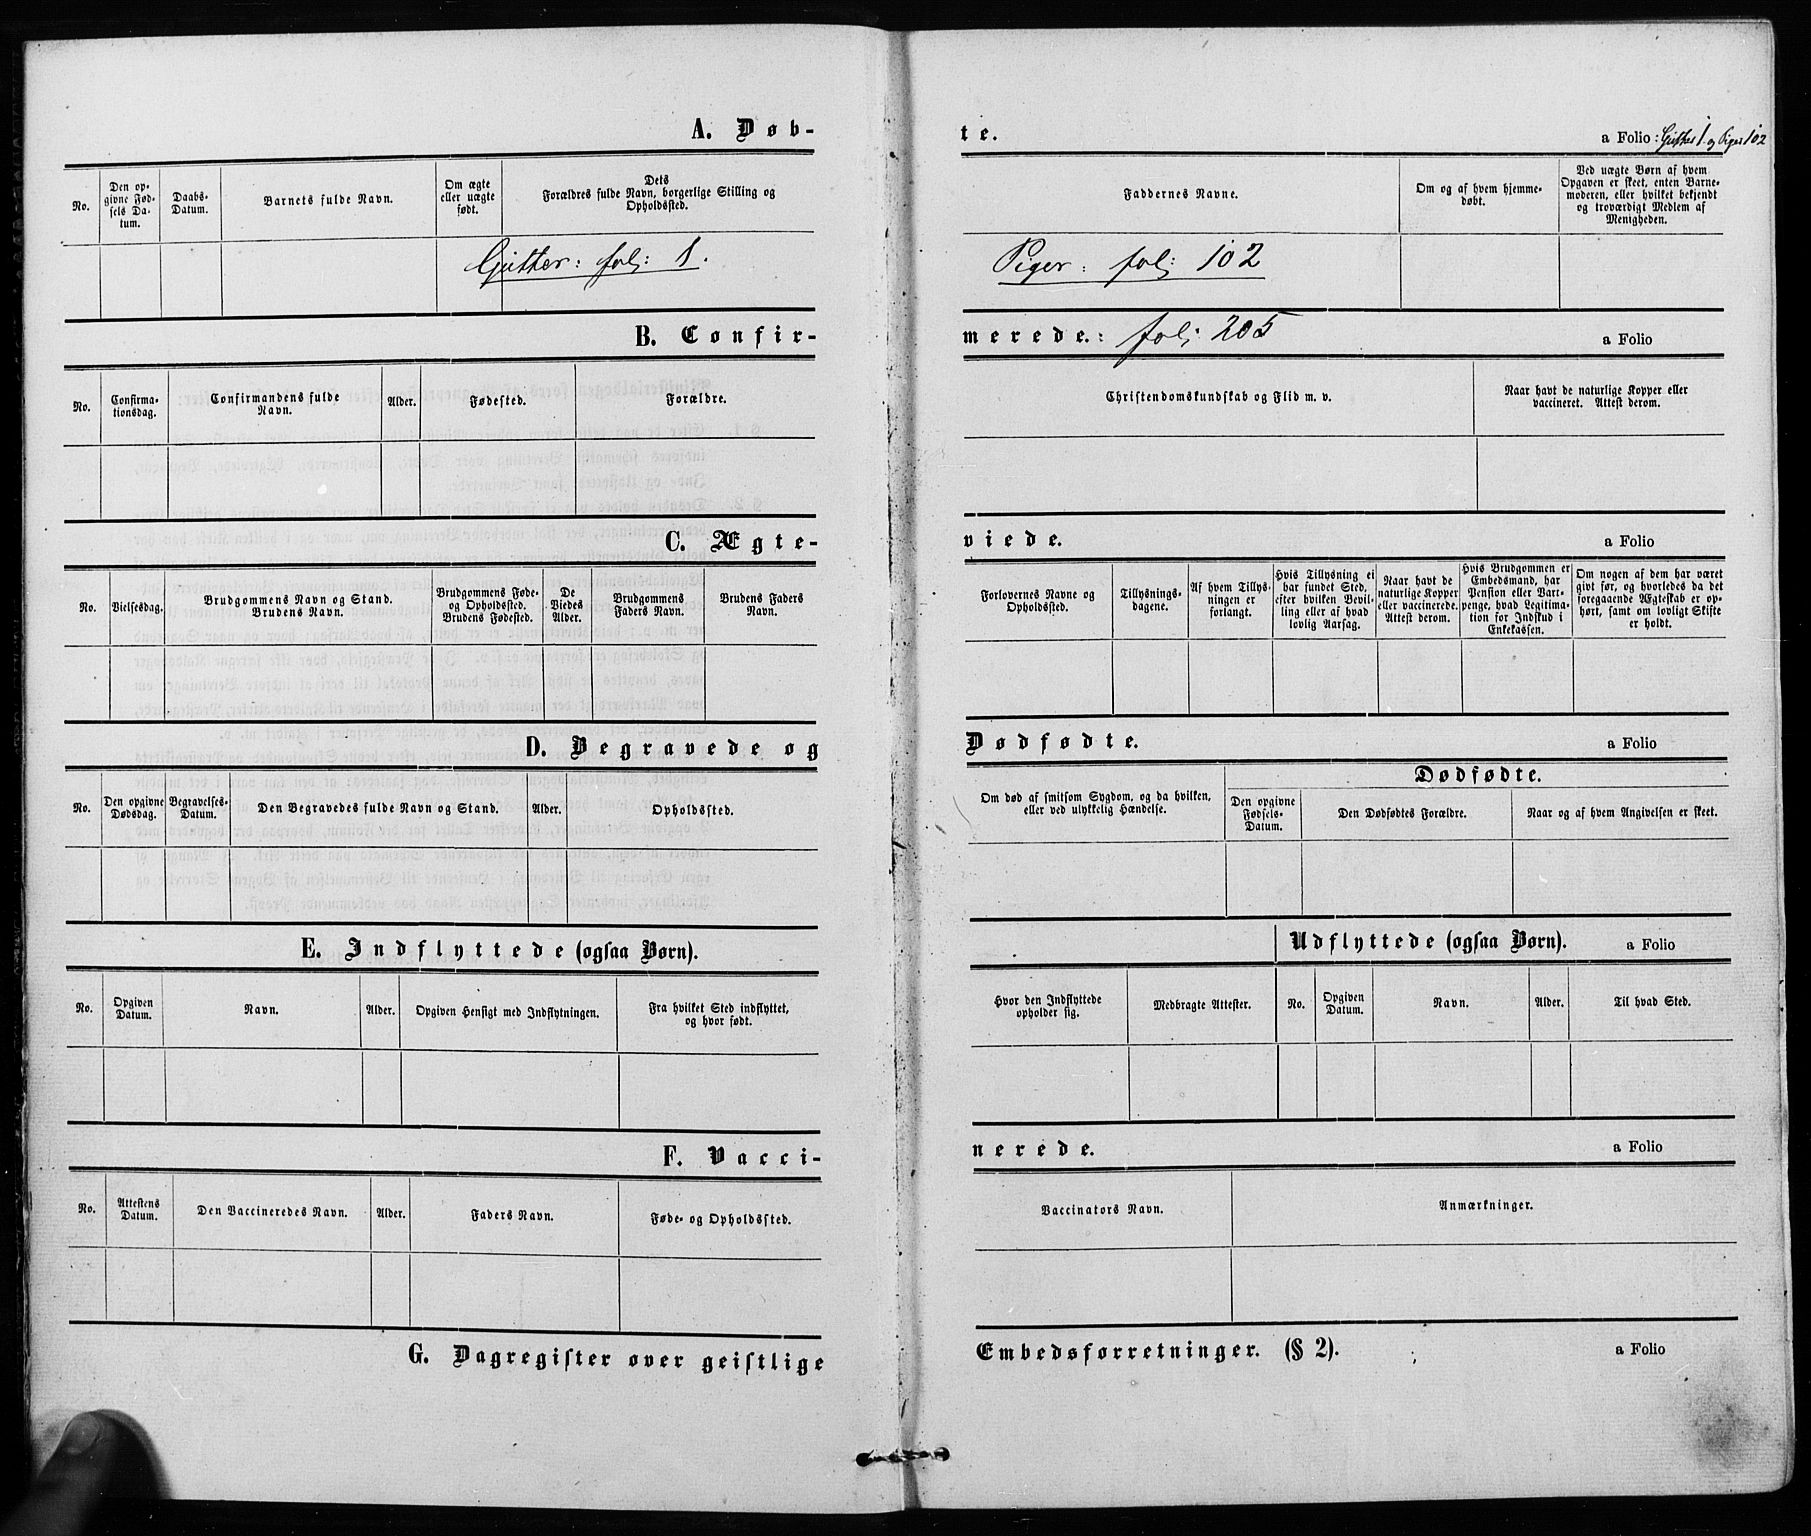 A. Døb-
te.
a Folio: Gutter 1. og Piger 102
No.
Den op-
givne Fød-
sels Da-
tum.
Daabs-
Datum.
Barnets fulde Navn.
Om ægte
eller uægte
født.
Dets
Forældres fulde Navn, borgerlige Stilling og
Opholdssted.
Faddernes Navne.
Om og af hvem hjemme-
døbt.
Ved uægte Børn af hvem
Opgaven er skeet, enten Barne-
moderen, eller hvilket bekjendt
og troværdigt Medlem af
Menigheden.
Gutter: fol: 1.
Piger: fol: 102
B. Confir-
merede.: fol: 205
a Folio
No.
Confirma-
tionsdag.
Confirmandens fulde
Navn.
Alder.
Fødested.
Forældre.
Christendomskundskab og Flid m. v.
Naar havt de naturlige Kopper eller
vaccineret. Attest derom.
C. Ægte-
viede.
a Folio
No.
Vielsesdag.
Brudgommens Navn og Stand.
Brudens Navn.
Brudgommens Føde-
og Opholdssted.
Brudens Fødested.
De
Viedes
Alder.
Brudgommens
Faders Navn.
Brudens Faders
Navn.
Forlovernes Navne og
Opholdssted.
Tillysnings-
dagene.
Af hvem Tillys-
ningen er
forlangt.
Hvis Tillysning ei
har fundet Sted,
efter hvilken Bevil-
ling eller af hvad
lovlig Aarsag.
Naar havt de
naturlige Kopper
eller vaccinerede.
Attest derom.
Hvis Brudgommen er
Embedsmand, har
Pension eller Var-
penge, hvad Legitima-
tion for Indskud i
Enkekassen.
Om nogen af dem har været
givt før, og hvorledes da det
foregaaende Ægteskab er op-
hørt, samt om lovligt Skifte
er holdt.
D. Begravede og
Dødfødte.
a Folio
No.
Den opgivne
Dødsdag.
Begravelses-
Datum.
Den Begravedes fulde Navn og Stand.
Alder.
Opholdssted.
Om død af smitsom Sygdom, og da hvilken,
eller ved ulykkelig Hændelse.
Dødfødte.
Den opgivne
Fødsels-
Datum.
Den Dødfødtes Forældre.
Naar og af hvem Angivelsen er skeet.
E. Indflyttede (ogsaa Børn).
Udflyttede (ogsaa Børn).
a Folio
No.
Opgiven
Datum.
Navn.
Alder.
Opgiven Hensigt med Indflytningen.
Fra hvilket Sted indflyttet,
og hvor født.
Hvor den Indflyttede
opholder sig.
Medbragte Attester.
No.
Opgiven
Datum.
Navn.
Alder.
Til hvad Sted.
F. Vacci-
nerede.
a Folio
No.
Attestens
Datum.
Den Vaccineredes Navn.
Alder.
Faders Navn.
Føde- og Opholdssted.
Vaccinators Navn.
Anmærkninger.
G. Dagregister over geistlige
Embedsforretninger. (§ 2).
a Folio